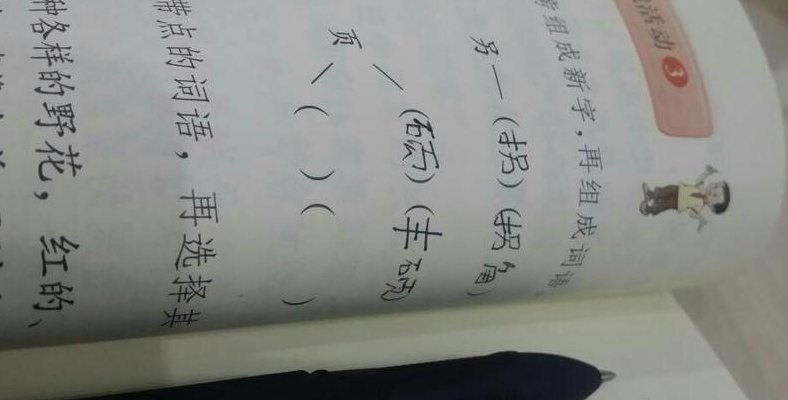 活动 3
组成新字，再组成词语。
另—(拐)(拐角)
页 (硕)(丰硕)
( )( )
带点的词语，再选择其
种各样的野花，红的、